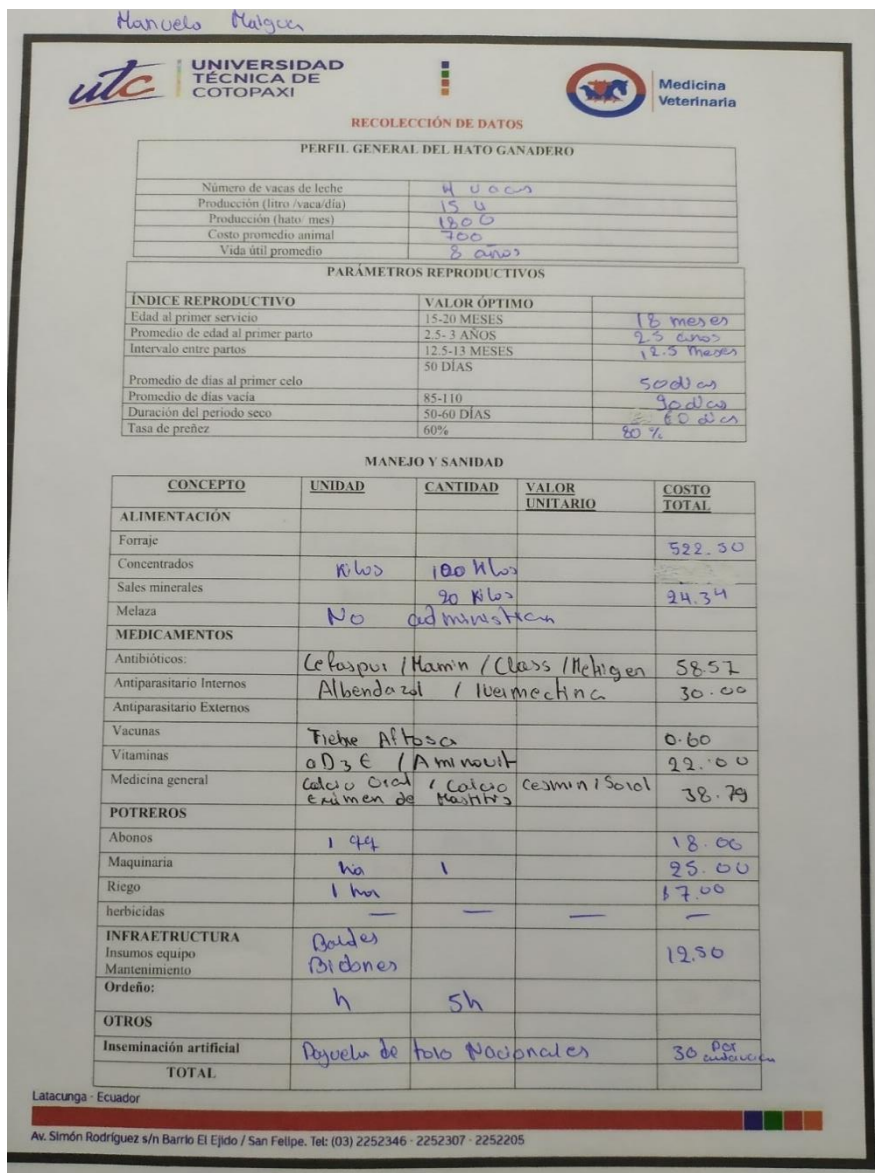 Manuela Maigua
utc
UNIVERSIDAD
TÉCNICA DE
COTOPAXI
Medicina
Veterinaria
RECOLECCIÓN DE DATOS
PERFIL GENERAL DEL HATO GANADERO
Número de vacas de leche 4 vacas
Producción (litro /vaca/día) 15
Producción (hato/ mes) 1800
Costo promedio animal 700
Vida útil promedio 8 años
PARÁMETROS REPRODUCTIVOS
ÍNDICE REPRODUCTIVO VALOR ÓPTIMO
Edad al primer servicio 15-20 MESES 18 meses
Promedio de edad al primer parto 2.5- 3 AÑOS 2.5 años
Intervalo entre partos 12.5-13 MESES 12.5 meses
Promedio de días al primer celo 50 DÍAS 50 días
Promedio de días vacía 85-110 90 días
Duración del periodo seco 50-60 DÍAS 60 días
Tasa de preñez 60% 80 %
MANEJO Y SANIDAD
CONCEPTO UNIDAD CANTIDAD VALOR UNITARIO COSTO TOTAL
ALIMENTACIÓN
Forraje 522.50
Concentrados Kilos Kilos
Sales minerales 20 Kilos 24.34
Melaza No administran
MEDICAMENTOS
Antibióticos: / Mamin / Class / 58.57
Antiparasitario Internos Albendazol / Ivermectina 30.00
Antiparasitario Externos
Vacunas Fiebre Aftosa 0.60
Vitaminas aD3E / Aminovit 22.00
Medicina general Calcio Oral / Calcio 38.79
Exámen de Mastitis
POTREROS
Abonos 1 qq 18.00
Maquinaria ha 1 25.00
Riego 1 hora 17.00
herbicidas — — — —
INFRAETRUCTURA Baldes
Insumos equipo 12.50
Mantenimiento Bidones
Ordeño: h 5h
OTROS
Inseminación artificial de toro Nacionales 30 por
TOTAL
Latacunga - Ecuador
Av. Simón Rodríguez s/n Barrio El Ejido / San Felipe. Tel: (03) 2252346 - 2252307 - 2252205